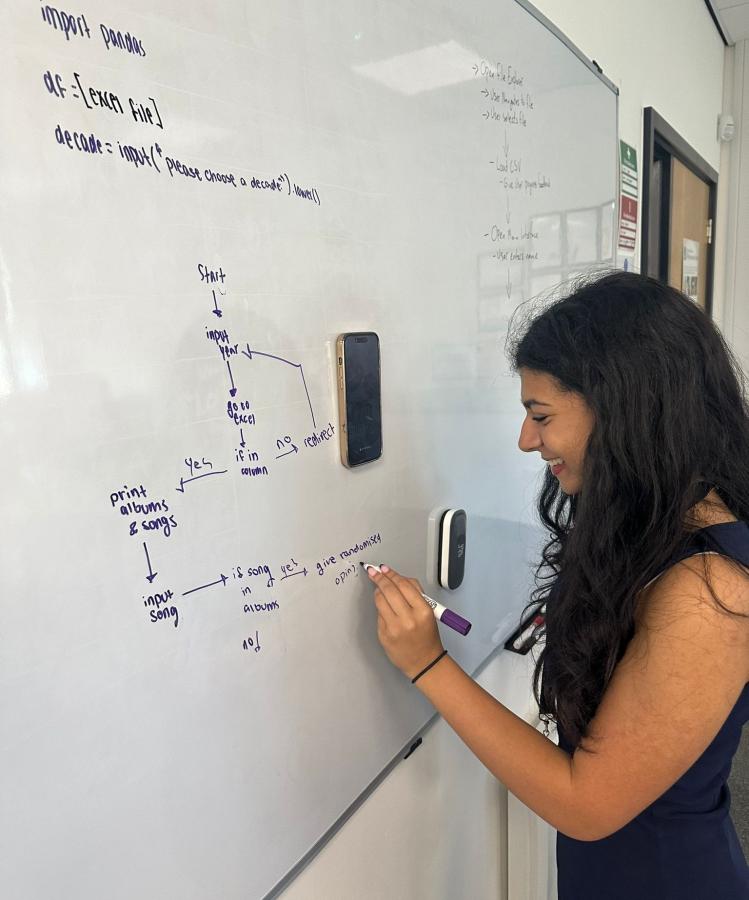 import pandas
df = [excel file]
decade = input("please choose a decade").lower()
Start
input
year
go to
excel
if in
column
no
redirect
yes
print
albums
& songs
input
song
if song
in
albums
yes
give randomised
no
→ Open File Explorer
→ User Navigates to file
→ User selects file
- Load CSV
- Give User progress feedback
- Open Main Interface
- User enters name